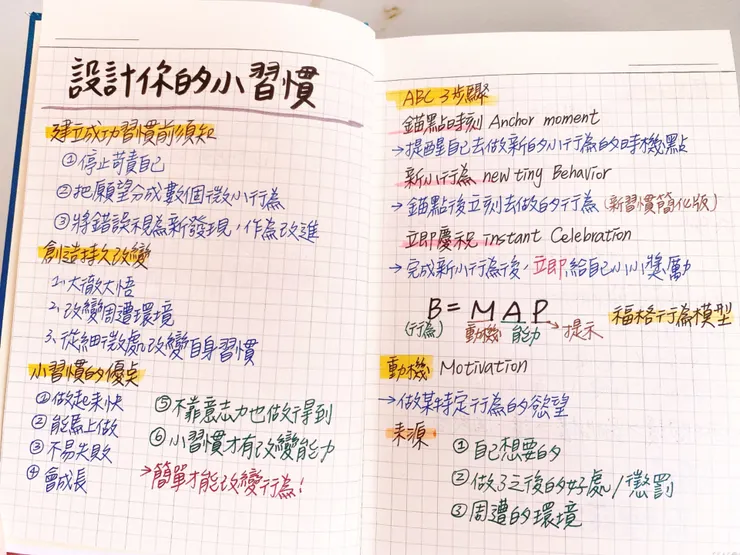 設計你的小習慣
建立成功習慣前須知
①停止苛責自己
②把願望分成數個微小行為
③將錯誤視為新發現,作為改進
創造持久改變
1.大徹大悟
2.改變周遭環境
3.從細微處改變自身習慣
小習慣的優点
①做起來快
②能馬上做
③不易失敗
④會成長
⑤不靠意志力也做得到
⑥小習慣才有改變能力
→簡單才能改變行為!
ABC 3步驟
錨點時刻 Anchor moment
→提醒自己去做新的小行為的時機點
新小行為 new tiny Behavior
→錨點後立刻去做的行為(新習慣簡化版)
立即慶祝 instant Celebration
→完成新小行為後,立即給自己小小獎勵
B = M A P 福格行為模型
(行為) 動機 能力 →提示
動機 Motivation
→做某特定行為的慾望
來源
①自己想要的
②做了之後的好處/懲罰
③周遭的環境